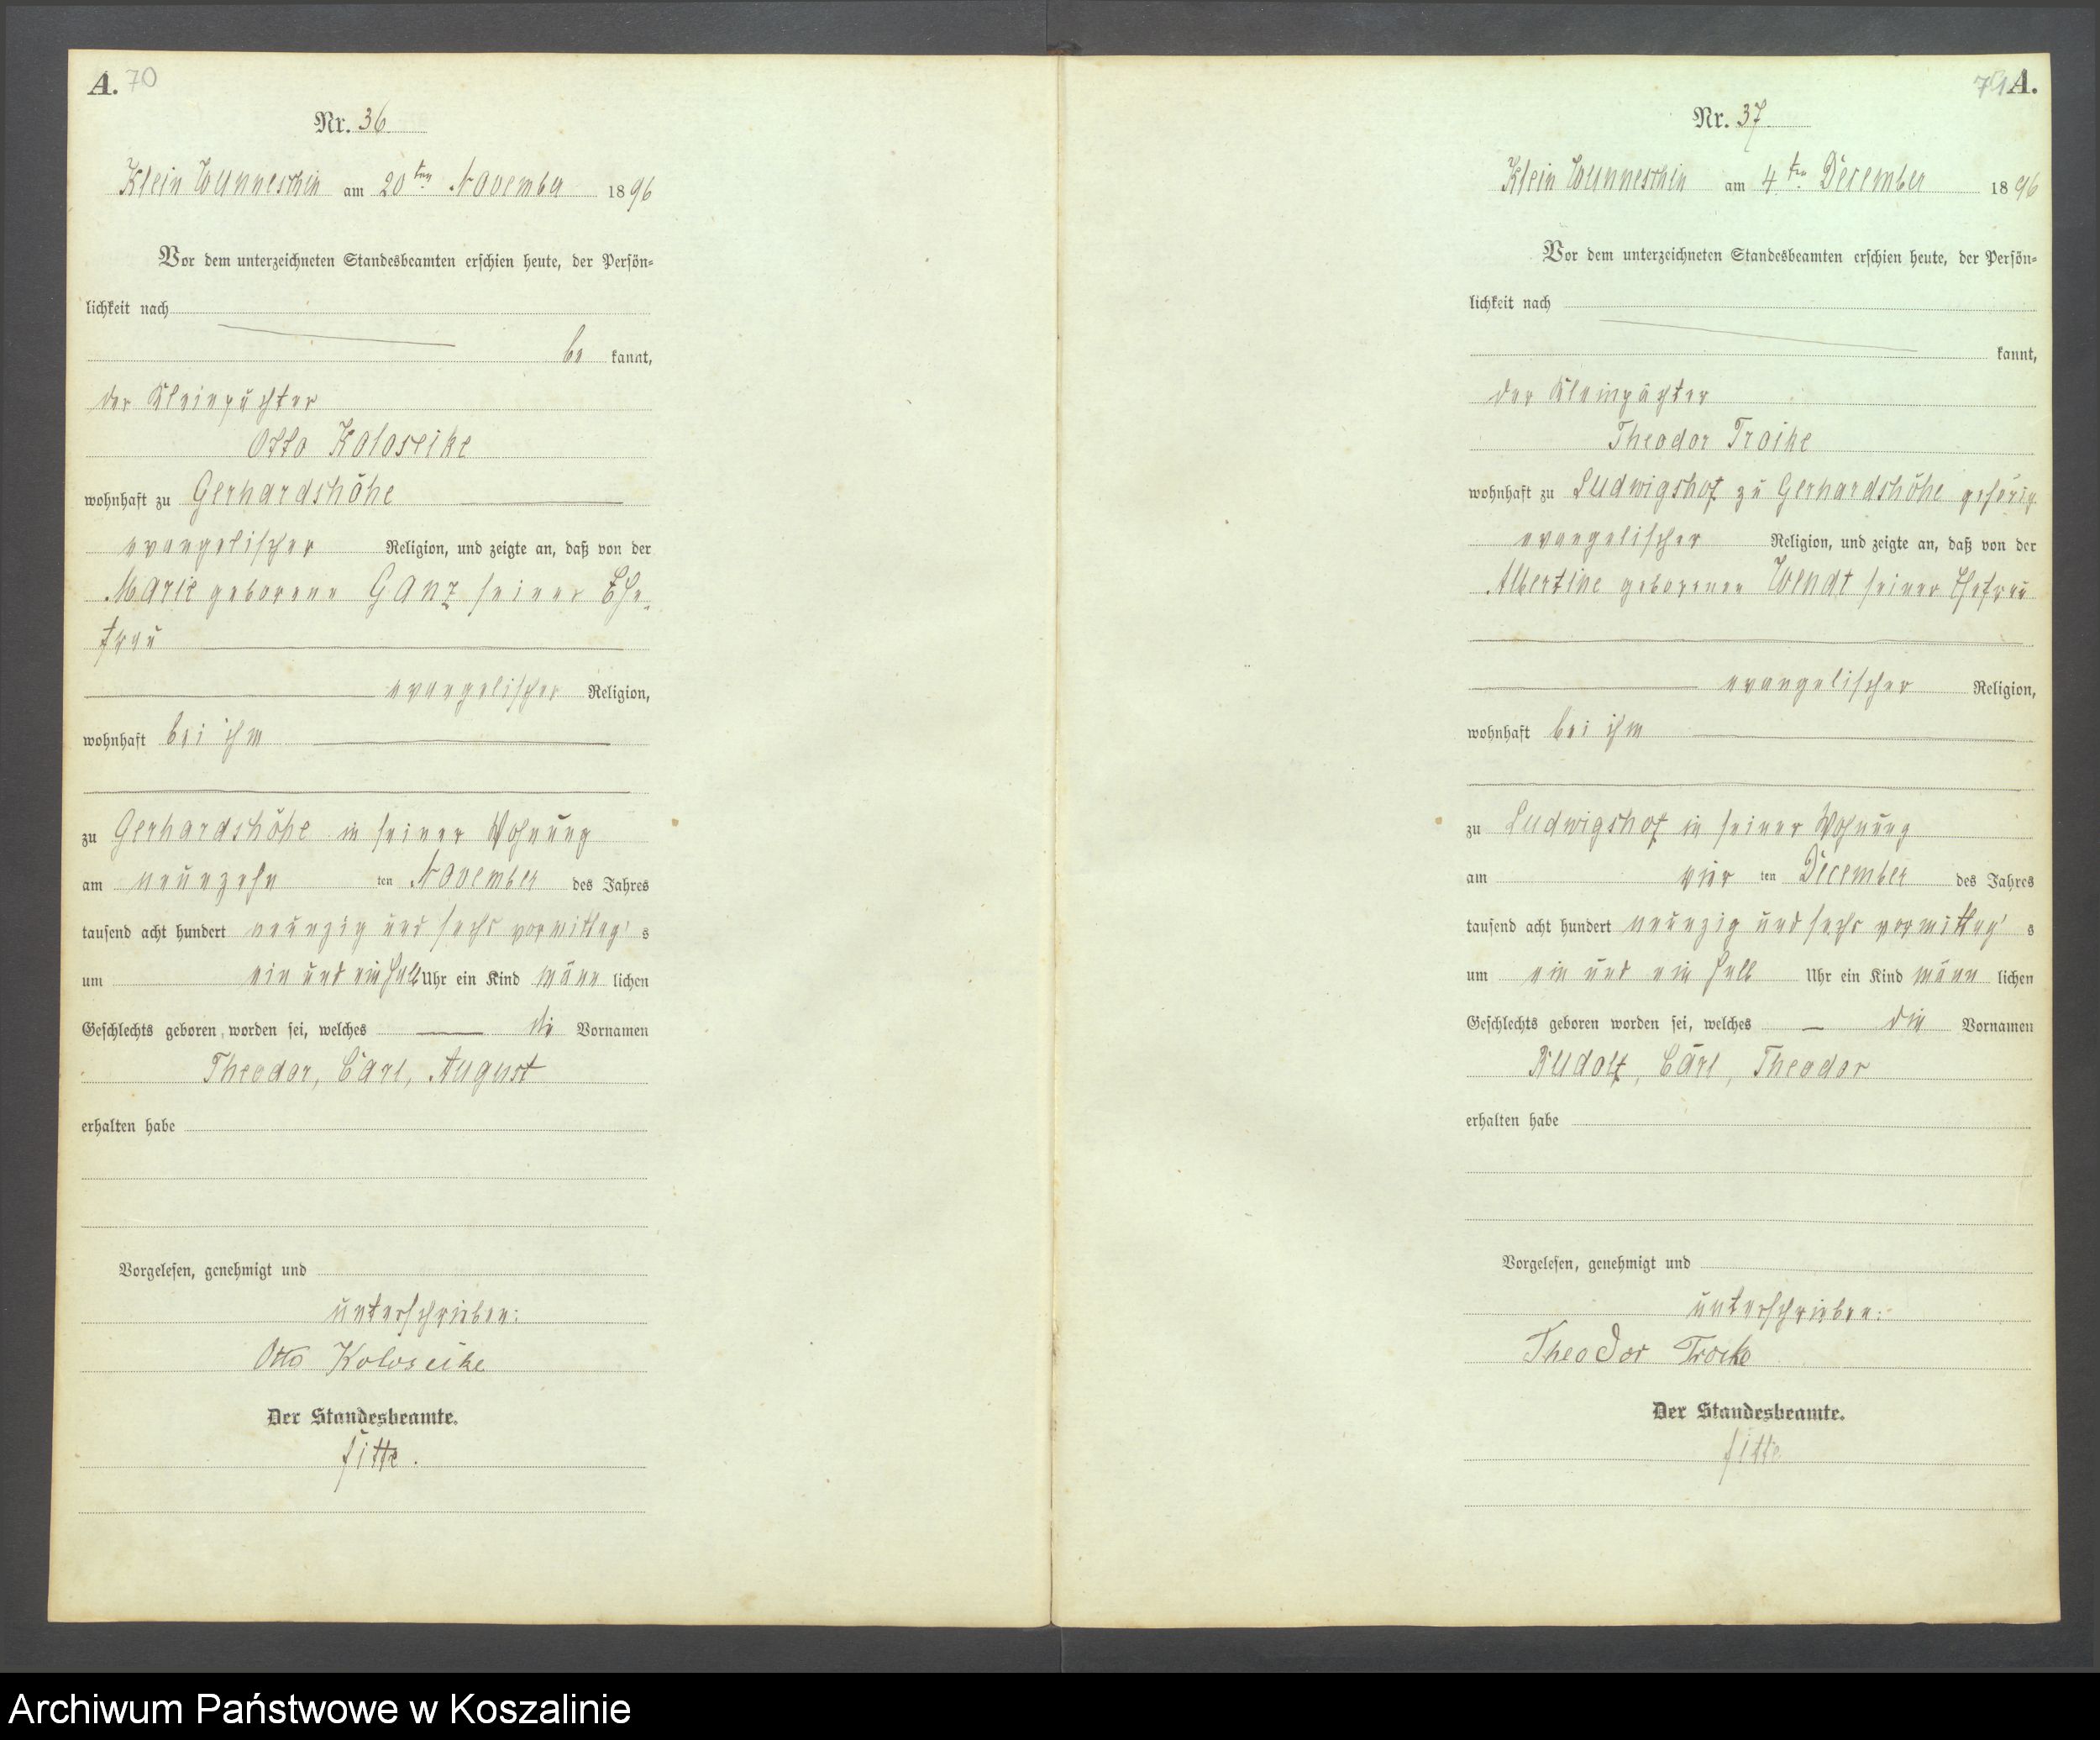 A. 70
Nr. 36
Klein Wunneschin am 20ten November 1896
Vor dem unterzeichneten Standesbeamten erschien heute, der Persön-
lichkeit nach
be kannt,
der Kleinpächter
Otto Koloseike
wohnhaft zu Gerhardshöhe
evangelischer Religion, und zeigte an, daß von der
Marie geborene Ganz seiner Ehe-
frau
evangelischer Religion,
wohnhaft bei ihm
zu Gerhardshöhe in seiner Wohnung
am neunzehn ten November des Jahres
tausend acht hundert neunzig und sechs vormittag's
um ein und ein halb Uhr ein Kind männ lichen
Geschlechts geboren worden sei, welches die Vornamen
Theodor, Carl, August
erhalten habe
Vorgelesen, genehmigt und
unterschrieben:
Otto Koloseike
Der Standesbeamte.
Fitte.
71 A.
Nr. 37
Klein Wunneschin am 4ten December 1896
Vor dem unterzeichneten Standesbeamten erschien heute, der Persön-
lichkeit nach
kannt,
der Kleinpächter
Theodor Troike
wohnhaft zu Ludwigshof zu Gerhardshöhe gehörig
evangelischer Religion, und zeigte an, daß von der
Albertine geborenen Wendt seiner Ehefrau
evangelischer Religion,
wohnhaft bei ihm
zu Ludwigshof in seiner Wohnung
am vier ten December des Jahres
tausend acht hundert neunzig und sechs vormittag's
um ein und ein halb Uhr ein Kind männ lichen
Geschlechts geboren worden sei, welches die Vornamen
Rudolf, Carl, Theodor
erhalten habe
Vorgelesen, genehmigt und
unterschrieben:
Theodor Troike
Der Standesbeamte.
Fitte
Archiwum Państwowe w Koszalinie